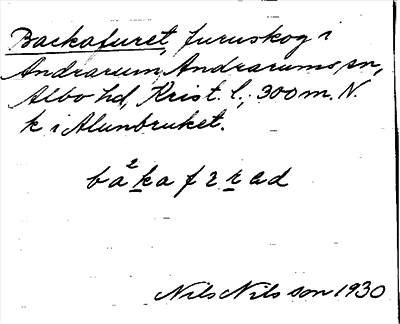 Backafuret, furuskog i
Andrarum, Andrarums sn,
Albo hd, Krist. l.; 300 m. N.
k i Alunbruket.
Nils Nilsson 1930